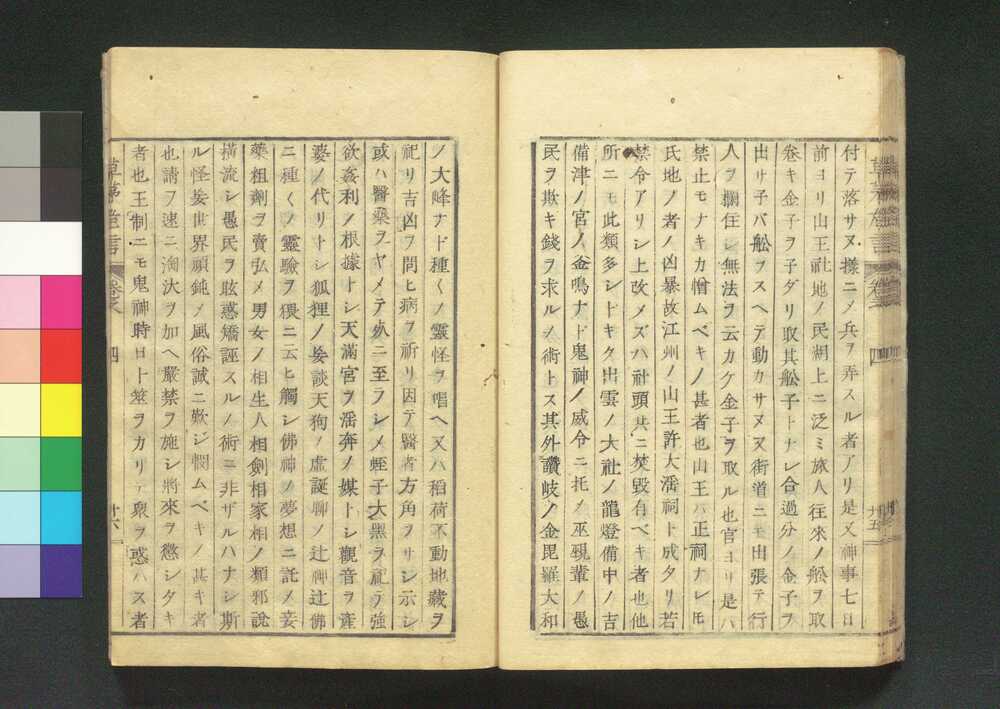 付テ落サヌ樣ニメ兵ヲ弄スル者アリ是又神事七日
前ヨリ山王社地ノ民湖上ニ泛ミ旅人往來ノ舩ヲ取
卷キ金子ヲ子ダリ取其舩子トナレ合過分ノ金子ヲ
出サ子バ舩ヲスヘテ動カサヌ又街道ニモ出張テ行
人ヲ攔住シ無法ヲ云カケ金子ヲ取ル也官ヨリ是ハ
禁止モナキカ憎ムベキノ甚者也山王ハ正祠ナレモ
氏地ノ者ノ凶暴故江州ノ山王許大淫祠ト成タリ若
禁令アリシ上改メズハ社頭共ニ焚毀有ベキ者也他
所ニモ此類多シトキク出雲ノ大社ノ龍燈備中ノ吉
備津ノ宮ノ釜鳴ナド鬼神ノ威令ニ托メ巫覡輩ノ愚
民ヲ欺キ錢ヲ求ルノ術トス其外讚岐ノ金毘羅大和
ノ大峰ナド種くノ靈怪ヲ唱ヘ又ハ稻荷不動地藏ヲ
祀リ吉凶ヲ問ヒ病ヲ祈リ因テ醫者方角ヲサシ示シ
或ハ醫藥ヲヤメテ死ニ至ラシメ蛭子大黑ヲ祀テ強
欲姦利ノ根據トシ天滿宮ヲ淫奔ノ媒トシ觀音ヲ産
婆ノ代リトシ狐狸ノ妄談天狗ノ虛誕聊ノ辻神辻佛
ニ種くノ靈驗ヲ猥ニ云ヒ觸シ佛神ノ夢想ニ託メ妄
藥粗劑ヲ賣弘メ男女ノ相生人相劍相家相ノ類邪說
橫流シ愚民ヲ眩惑矯誣スルノ術ニ非ザルハナシ斯
ル怪妄世界頑鈍ノ風俗誠ニ歎ジ憫ムベキノ甚キ者
也請フ速ニ淘汰ヲ加ヘ嚴禁ヲ施シ將來ヲ懲シタキ
者也王制ニモ鬼神時日卜筮ヲカリテ衆ヲ惑ハス者
草茅危言
卷之
四
廿五
草茅危言
卷之
四
廿六